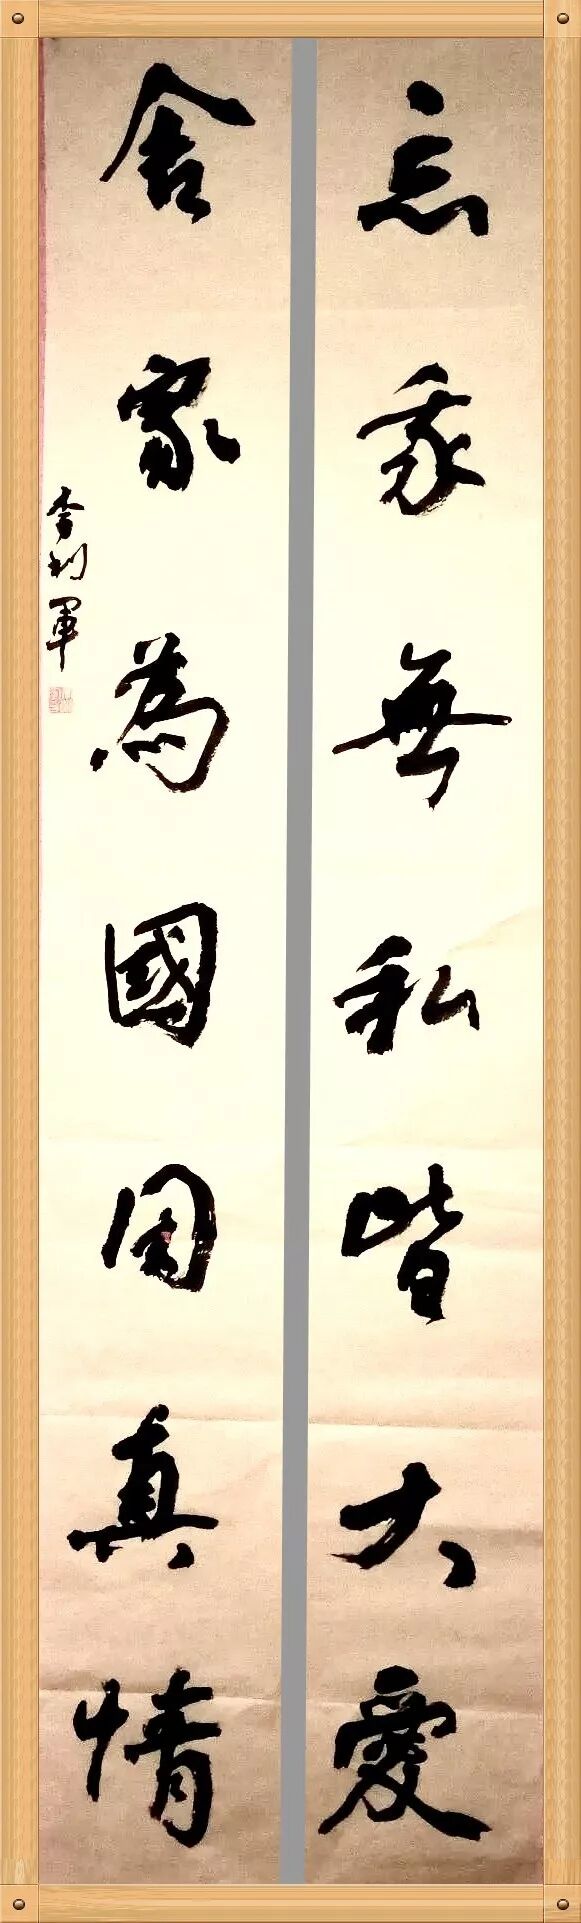 忘我無私皆大愛
舍家為國周真情
李利軍